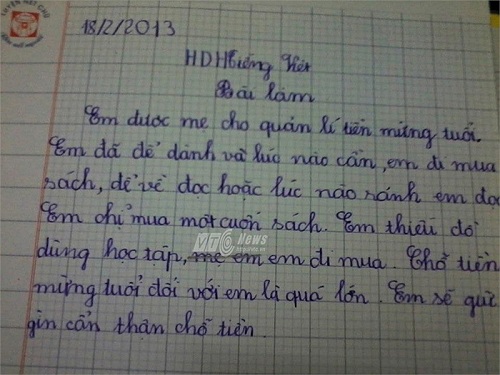 18/2/2013
HDHTiếng Việt
Bài làm
Em được mẹ cho quản lí tiền mừng tuổi.
Em đã để dành và lúc nào cần, em đi mua
sách, để về đọc hoặc lúc nào rảnh em đọc
Em chỉ mua một cuốn sách. Em thiếu đồ
dùng học tập, mẹ em em đi mua. Chỗ tiền
mừng tuổi đối với em là quá lớn. Em sẽ giữ
gìn cẩn thận chỗ tiền.
VTC News